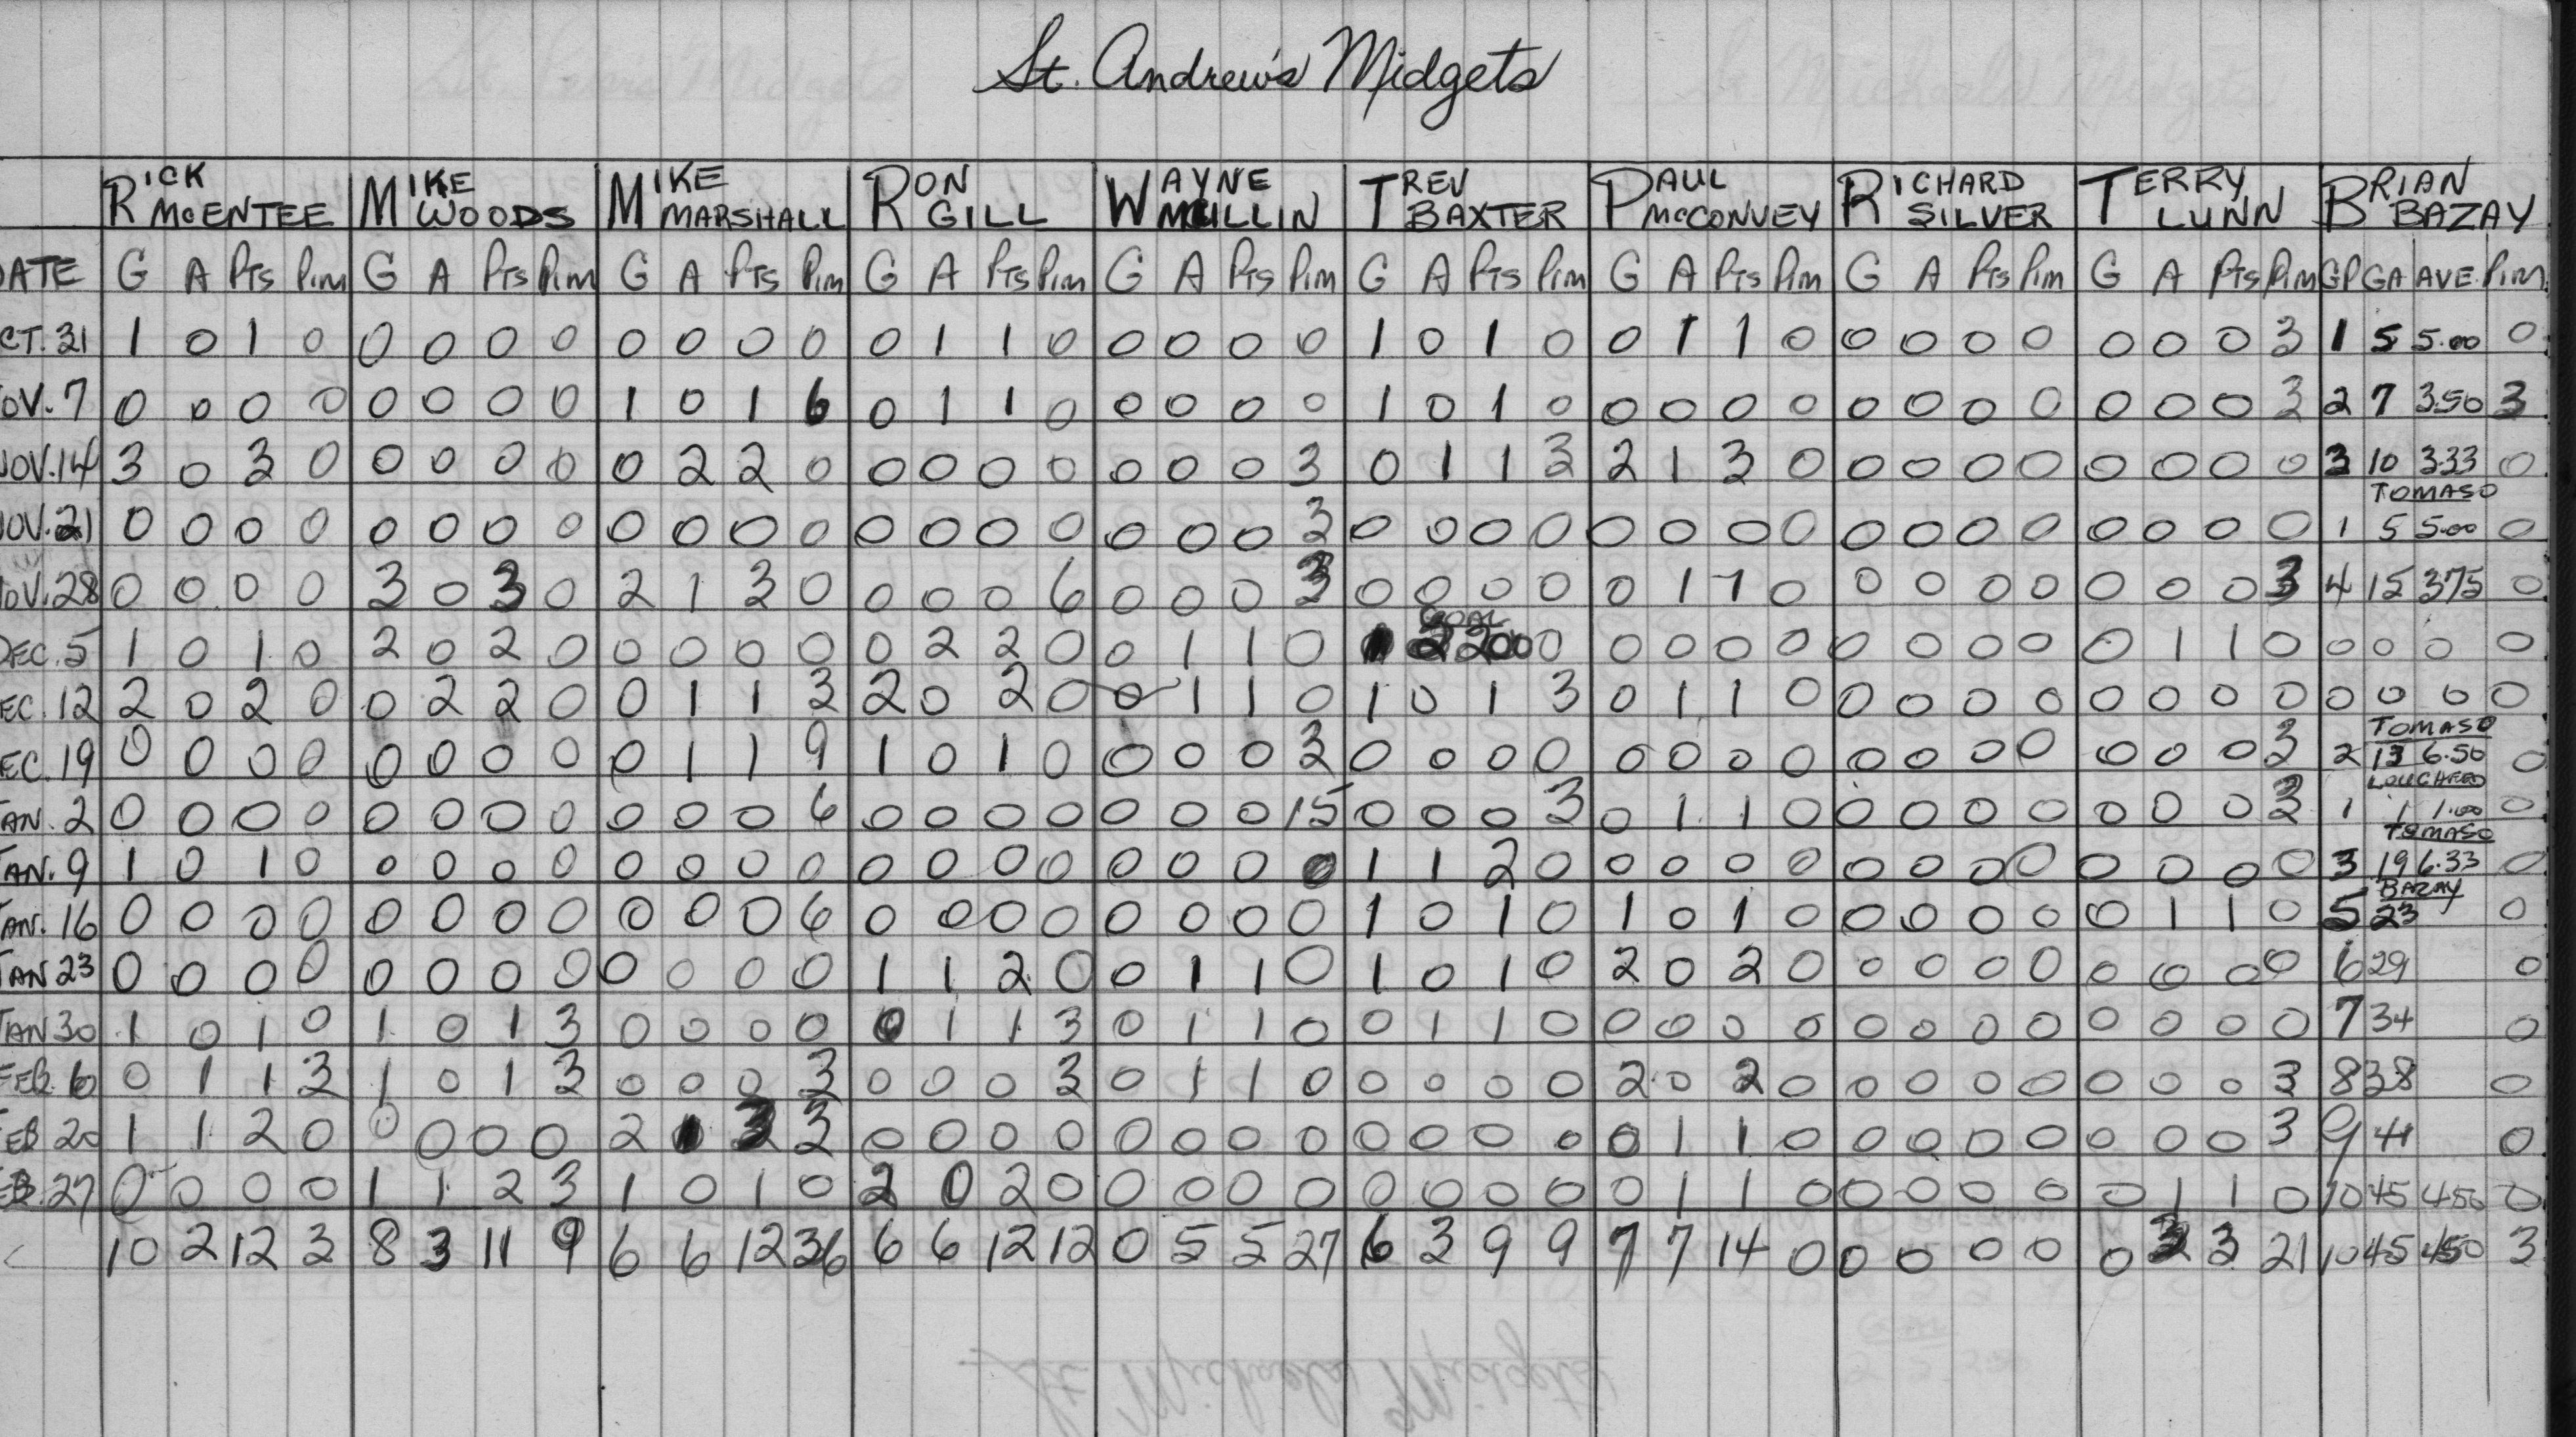 St. Andrew's Midgets
RICK McENTEE MIKE WOODS MIKE MARSHALL RON GILL WAYNE MULLIN TREV BAXTER PAUL McCONVEY RICHARD SILVER TERRY LUNN BRIAN BAZAY
DATE G A Pts Pim G A Pts Pim G A Pts Pim G A Pts Pim G A Pts Pim G A Pts Pim G A Pts Pim G A Pts Pim G A Pts Pim GP GA AVE. Pim
CT. 31 1 0 1 0 0 0 0 0 0 0 0 0 0 1 1 0 0 0 0 0 1 0 1 0 0 1 1 0 0 0 0 0 0 0 0 3 1 5 5.00 0
OV. 7 0 0 0 0 0 0 0 0 1 0 1 6 0 1 1 0 0 0 0 0 1 0 1 0 0 0 0 0 0 0 0 0 0 0 0 3 2 7 3.50 3
NOV. 14 3 0 3 0 0 0 0 0 0 2 2 0 0 0 0 0 0 0 0 3 0 1 1 3 2 1 3 0 0 0 0 0 0 0 0 0 3 10 3.33 0
TOMASO
NOV. 21 0 0 0 0 0 0 0 0 0 0 0 0 0 0 0 0 0 0 0 3 0 0 0 0 0 0 0 0 0 0 0 0 0 0 0 0 1 5 5.00 0
NOV. 28 0 0 0 0 3 0 3 0 2 1 3 0 0 0 0 6 0 0 0 3 0 0 0 0 0 1 1 0 0 0 0 0 0 0 0 3 4 15 375 0
GOAL
DEC. 5 1 0 1 0 2 0 2 0 0 0 0 0 0 2 2 0 0 1 1 0 2 2.00 0 0 0 0 0 0 0 0 0 0 1 1 0 0 0 0 0
EC. 12 2 0 2 0 0 2 2 0 0 1 1 3 2 0 2 0 0 1 1 0 1 0 1 3 0 1 1 0 0 0 0 0 0 0 0 0 0 0 0 0
TOMASO
EC. 19 0 0 0 0 0 0 0 0 0 1 1 9 1 0 1 0 0 0 0 3 0 0 0 0 0 0 0 0 0 0 0 0 0 0 0 3 2 13 6.50 0
LOUGHEED
JAN. 2 0 0 0 0 0 0 0 0 0 0 0 6 0 0 0 0 0 0 0 15 0 0 0 3 0 1 1 0 0 0 0 0 0 0 0 3 1 1 1.00 0
TOMASO
JAN. 9 1 0 1 0 0 0 0 0 0 0 0 0 0 0 0 0 0 0 0 0 1 1 2 0 0 0 0 0 0 0 0 0 0 0 0 0 3 19 6.33 0
BAZAY
JAN. 16 0 0 0 0 0 0 0 0 0 0 0 6 0 0 0 0 0 0 0 0 1 0 1 0 1 0 1 0 0 0 0 0 0 1 1 0 5 23 0
JAN 23 0 0 0 0 0 0 0 0 0 0 0 0 1 1 2 0 0 1 1 0 1 0 1 0 2 0 2 0 0 0 0 0 0 0 0 0 6 29 0
JAN 30 1 0 1 0 1 0 1 3 0 0 0 0 0 1 1 3 0 1 1 0 0 1 1 0 0 0 0 0 0 0 0 0 0 0 0 0 7 34 0
FEB. 6 0 1 1 3 1 0 1 3 0 0 0 3 0 0 0 3 0 1 1 0 0 0 0 0 2 0 2 0 0 0 0 0 0 0 0 3 8 38 0
FEB 20 1 1 2 0 0 0 0 0 2 1 3 3 0 0 0 0 0 0 0 0 0 0 0 0 0 1 1 0 0 0 0 0 0 0 0 3 9 41 0
EB. 27 0 0 0 0 1 1 2 3 1 0 1 0 2 0 2 0 0 0 0 0 0 0 0 0 0 1 1 0 0 0 0 0 0 1 1 0 10 45 4.50 0
10 2 12 3 8 3 11 9 6 6 12 36 6 6 12 12 0 5 5 27 6 3 9 9 7 7 14 0 0 0 0 0 0 3 3 21 10 45 450 3